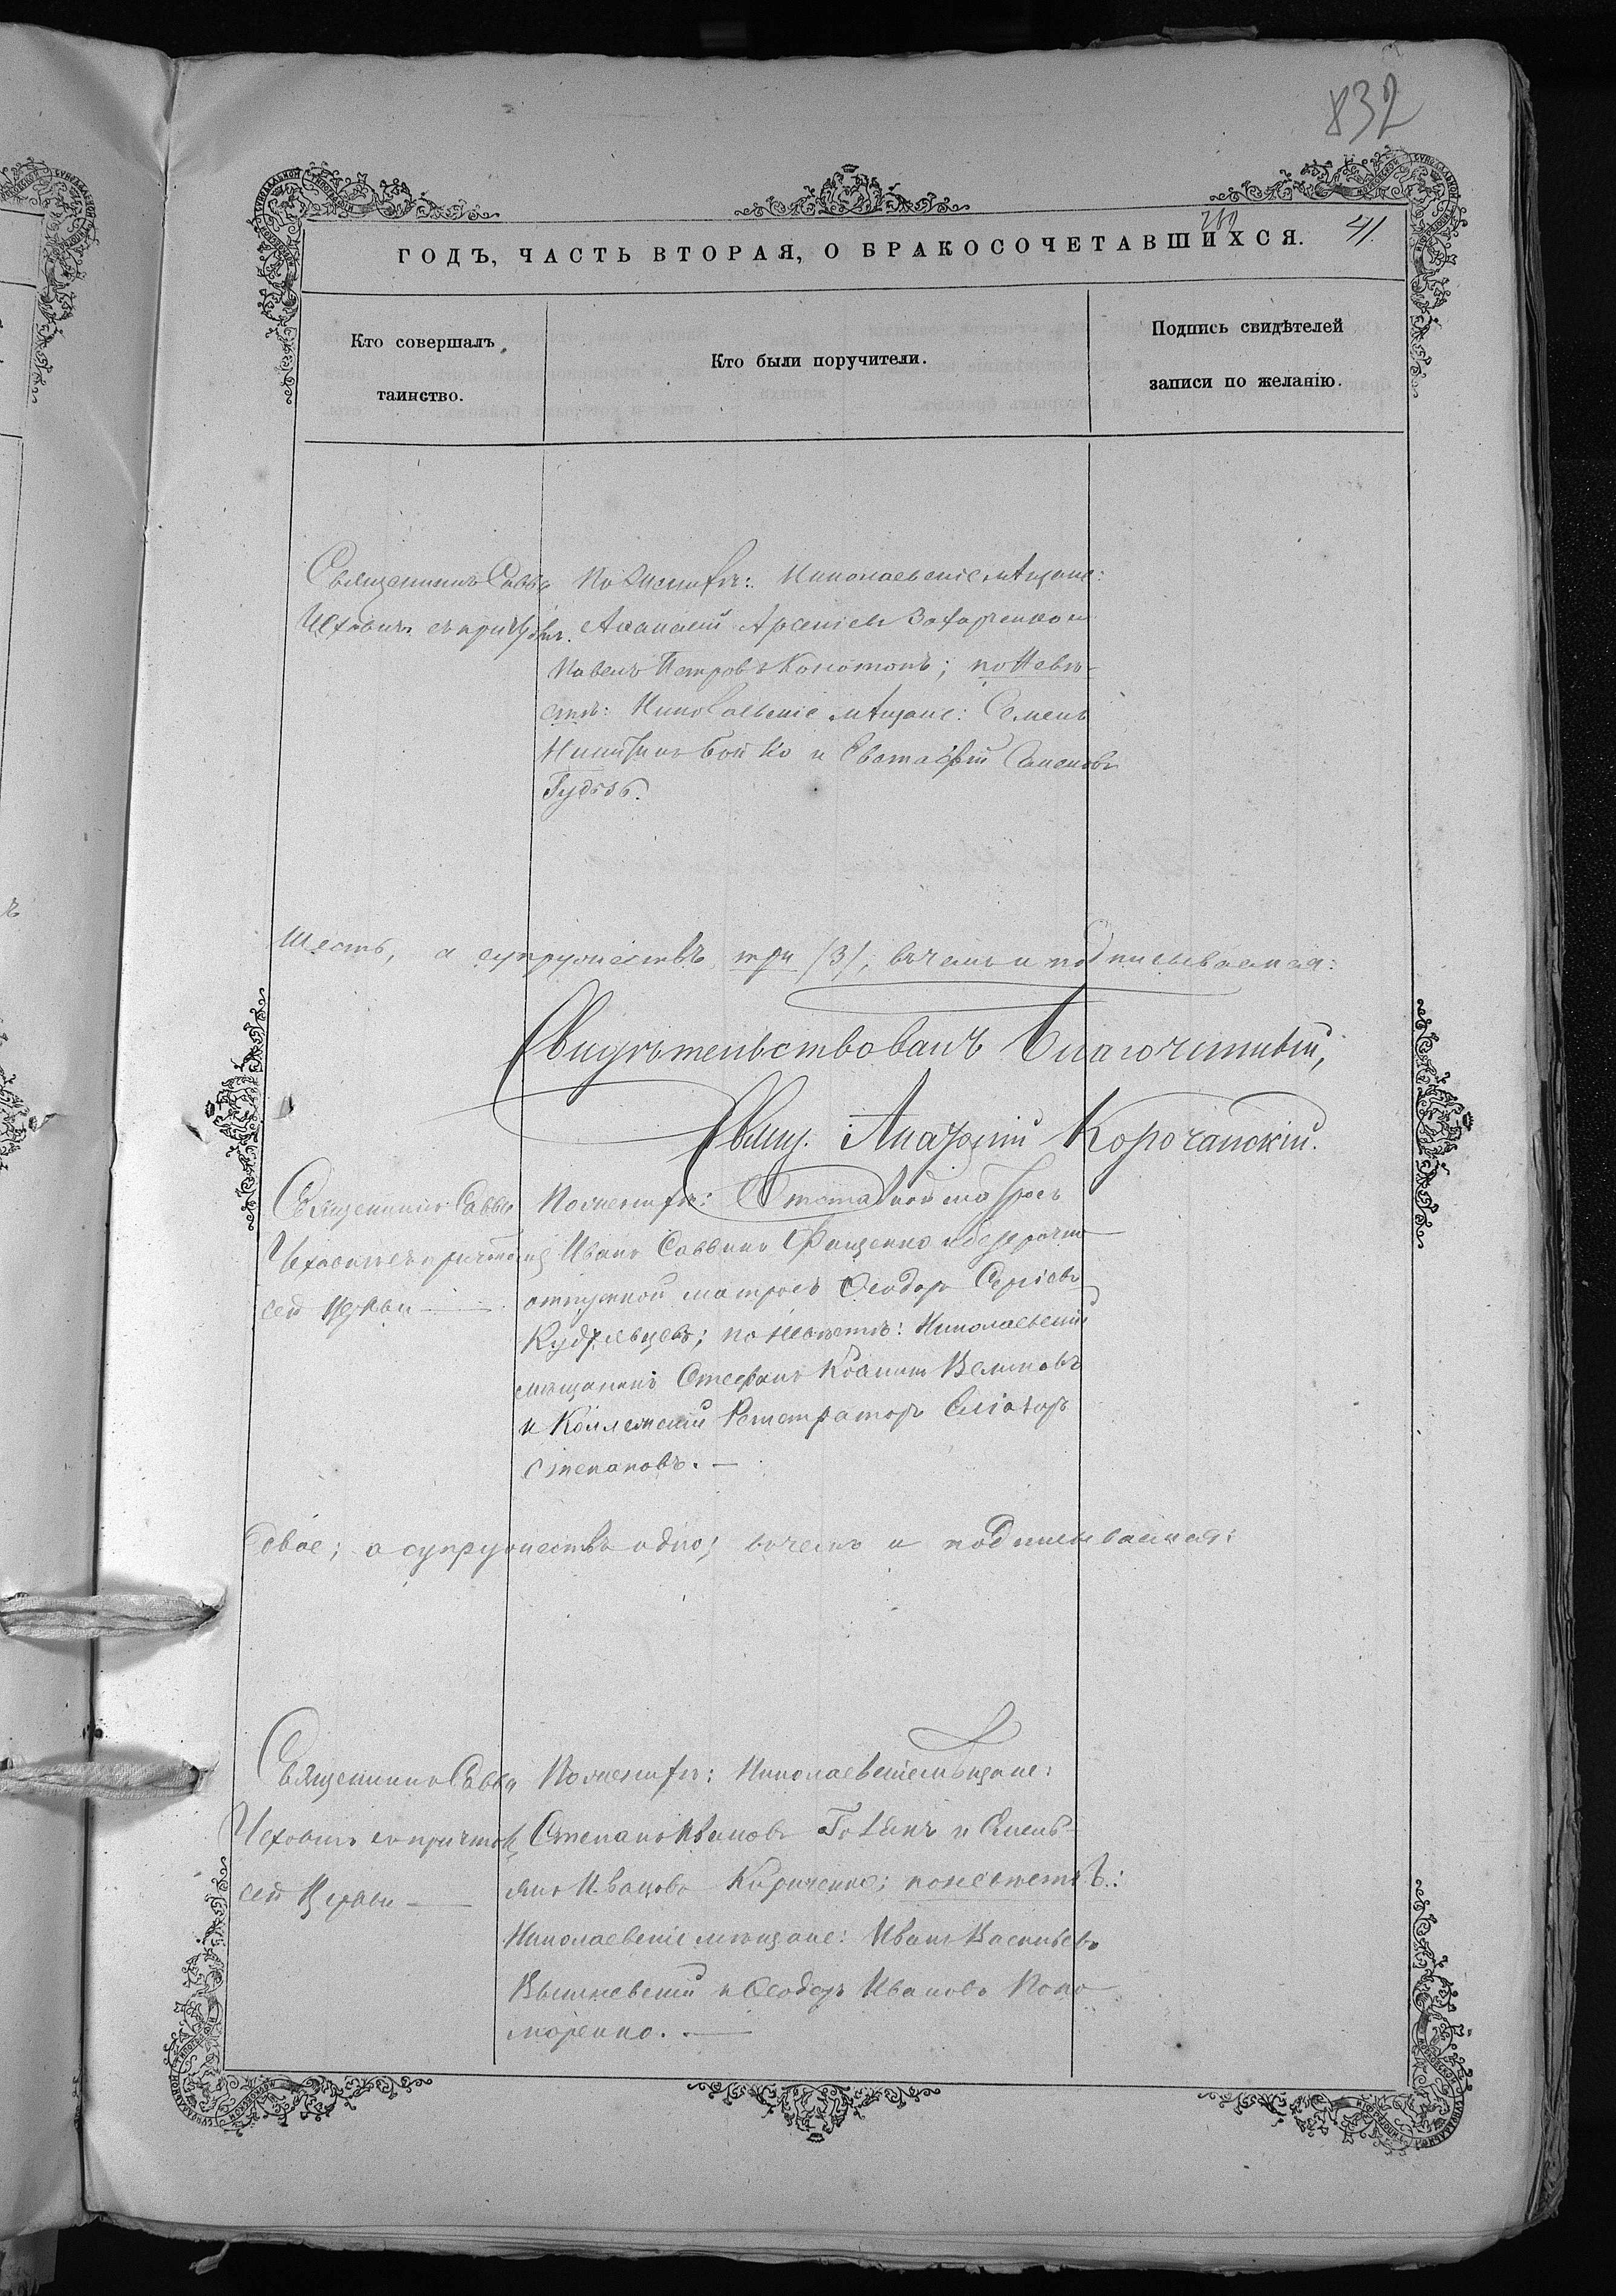 832
41.
ГОДЪ, ЧАСТЬ ВТОРАЯ, О БРАКОСОЧЕТАВШИХСЯ.
Кто совершалъ
таинство.
Кто были поручители.
Подпись свидѣтелей
записи по желанію.
Священникъ Савва
Чеховичъ съ причтомъ.
По женихѣ: Николаевскіе мѣщане:
Аѳанасій Арсеніевъ Захарченко и
Павелъ Петровъ Кономонъ; по невѣ-
стѣ: Николаевскіе мѣщане: Семенъ
Никитинъ Бойко и Евстафій Семеновъ
Гудзь.
Шесть, а супружествъ три (3), въ чемъ и подписываемся:
Свидѣтельствовалъ Благочинный,
Свящ. Корочанскій.
Священникъ Савва
Чеховичъ съ причтомъ
сей Церкви
По женихѣ: Отставной матросъ
Иванъ Саввинъ Фащенко и безсрочно
отпускной матросъ Ѳеодоръ Сергіевъ
Кудрявцевъ; по невѣстѣ: Николаевскій
мѣщанинъ Стефанъ Великовъ
и Коллежскій Регистраторъ
Степановъ.
двое; а супружествъ одно; въ чемъ и подписываемся:
Священникъ Савва
Чеховичъ съ причтомъ
сей Церкви
По женихѣ: Николаевскіе мѣщане:
Степанъ Ивановъ и Емель-
янъ Ивановъ Кириченко; по невѣстѣ:
Николаевскіе мѣщане: Иванъ Васильевъ
Вышневскій и Ѳеодоръ Ивановъ Поно-
маренко.